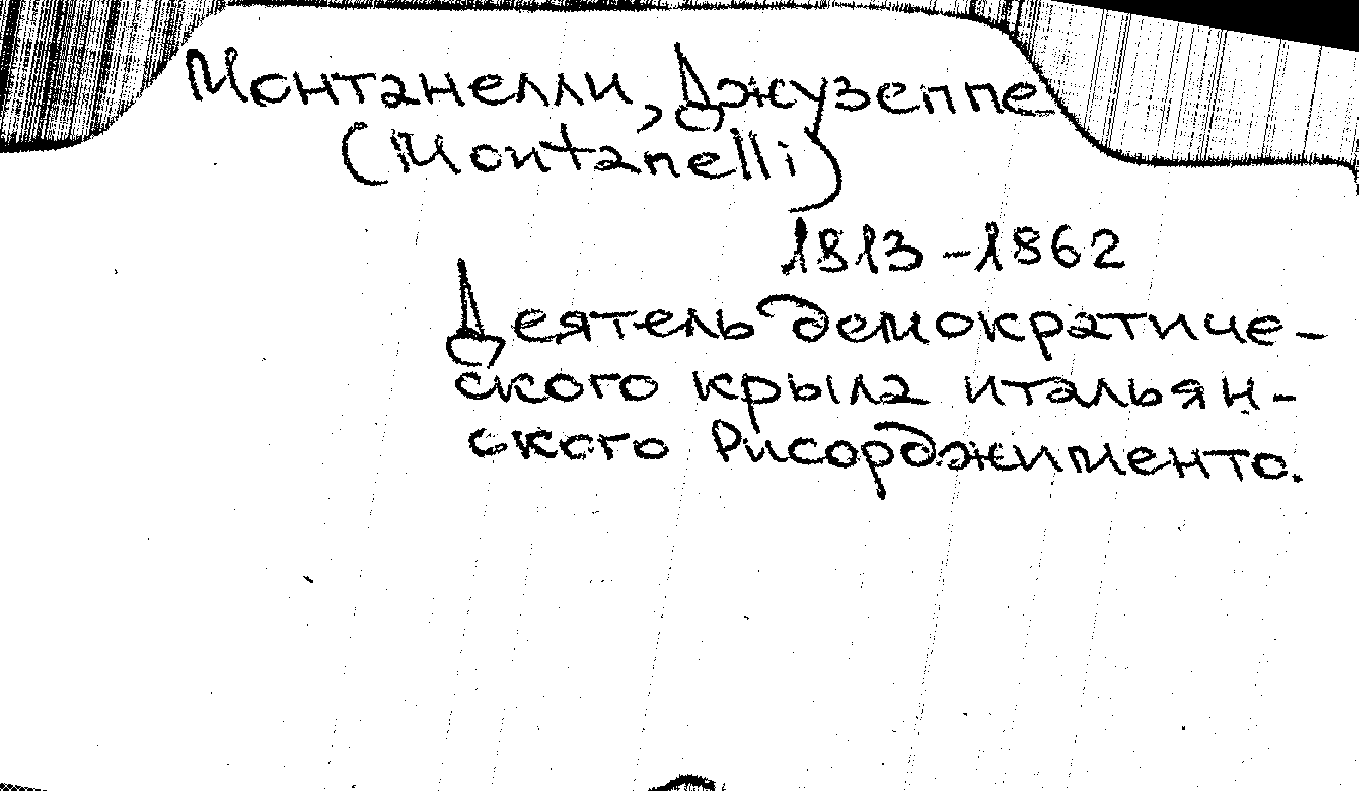 Монтанелли, Джузеппе
(Montanelli)
1813-1862
Деятель демократиче-
ского крыла итальян-
ского Рисорджименто.